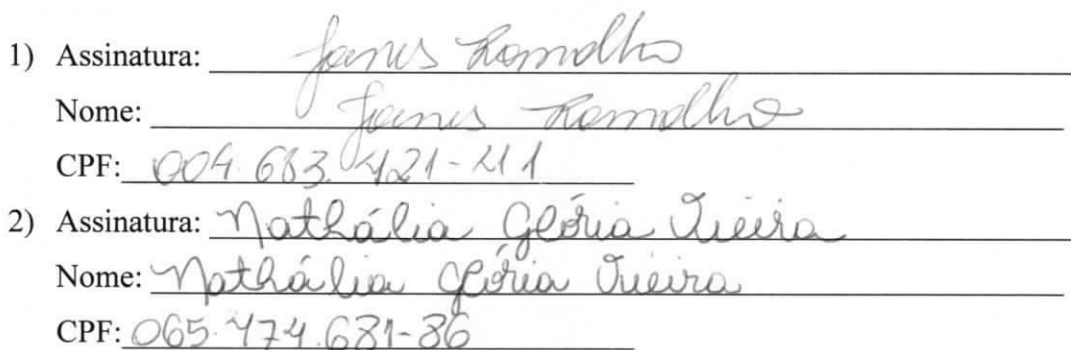 1) Assinatura: Janis Ramalho
Nome: Janis Ramalho
CPF: 004.683.421-41
2) Assinatura: Nathália Glória Vieira
Nome: Nathália Glória Vieira
CPF: 065.474.681-36